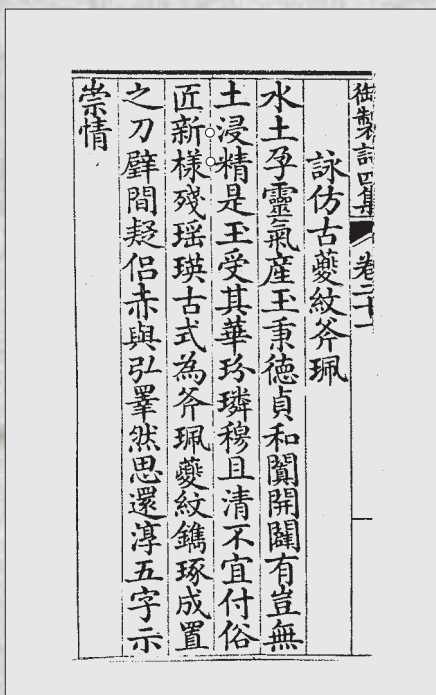 御製詩四集 卷二十一
詠仿古夔紋斧珮
水土孕靈氣産玉秉德貞和闐開闢有豈無
土浸精是玉受其華玢璘穆且清不宜付俗
匠新樣殘瑶瑛古式為斧珮夔紋鐫琢成置
之刀壁間疑侶赤與弘睪然思還淳五字示
崇情